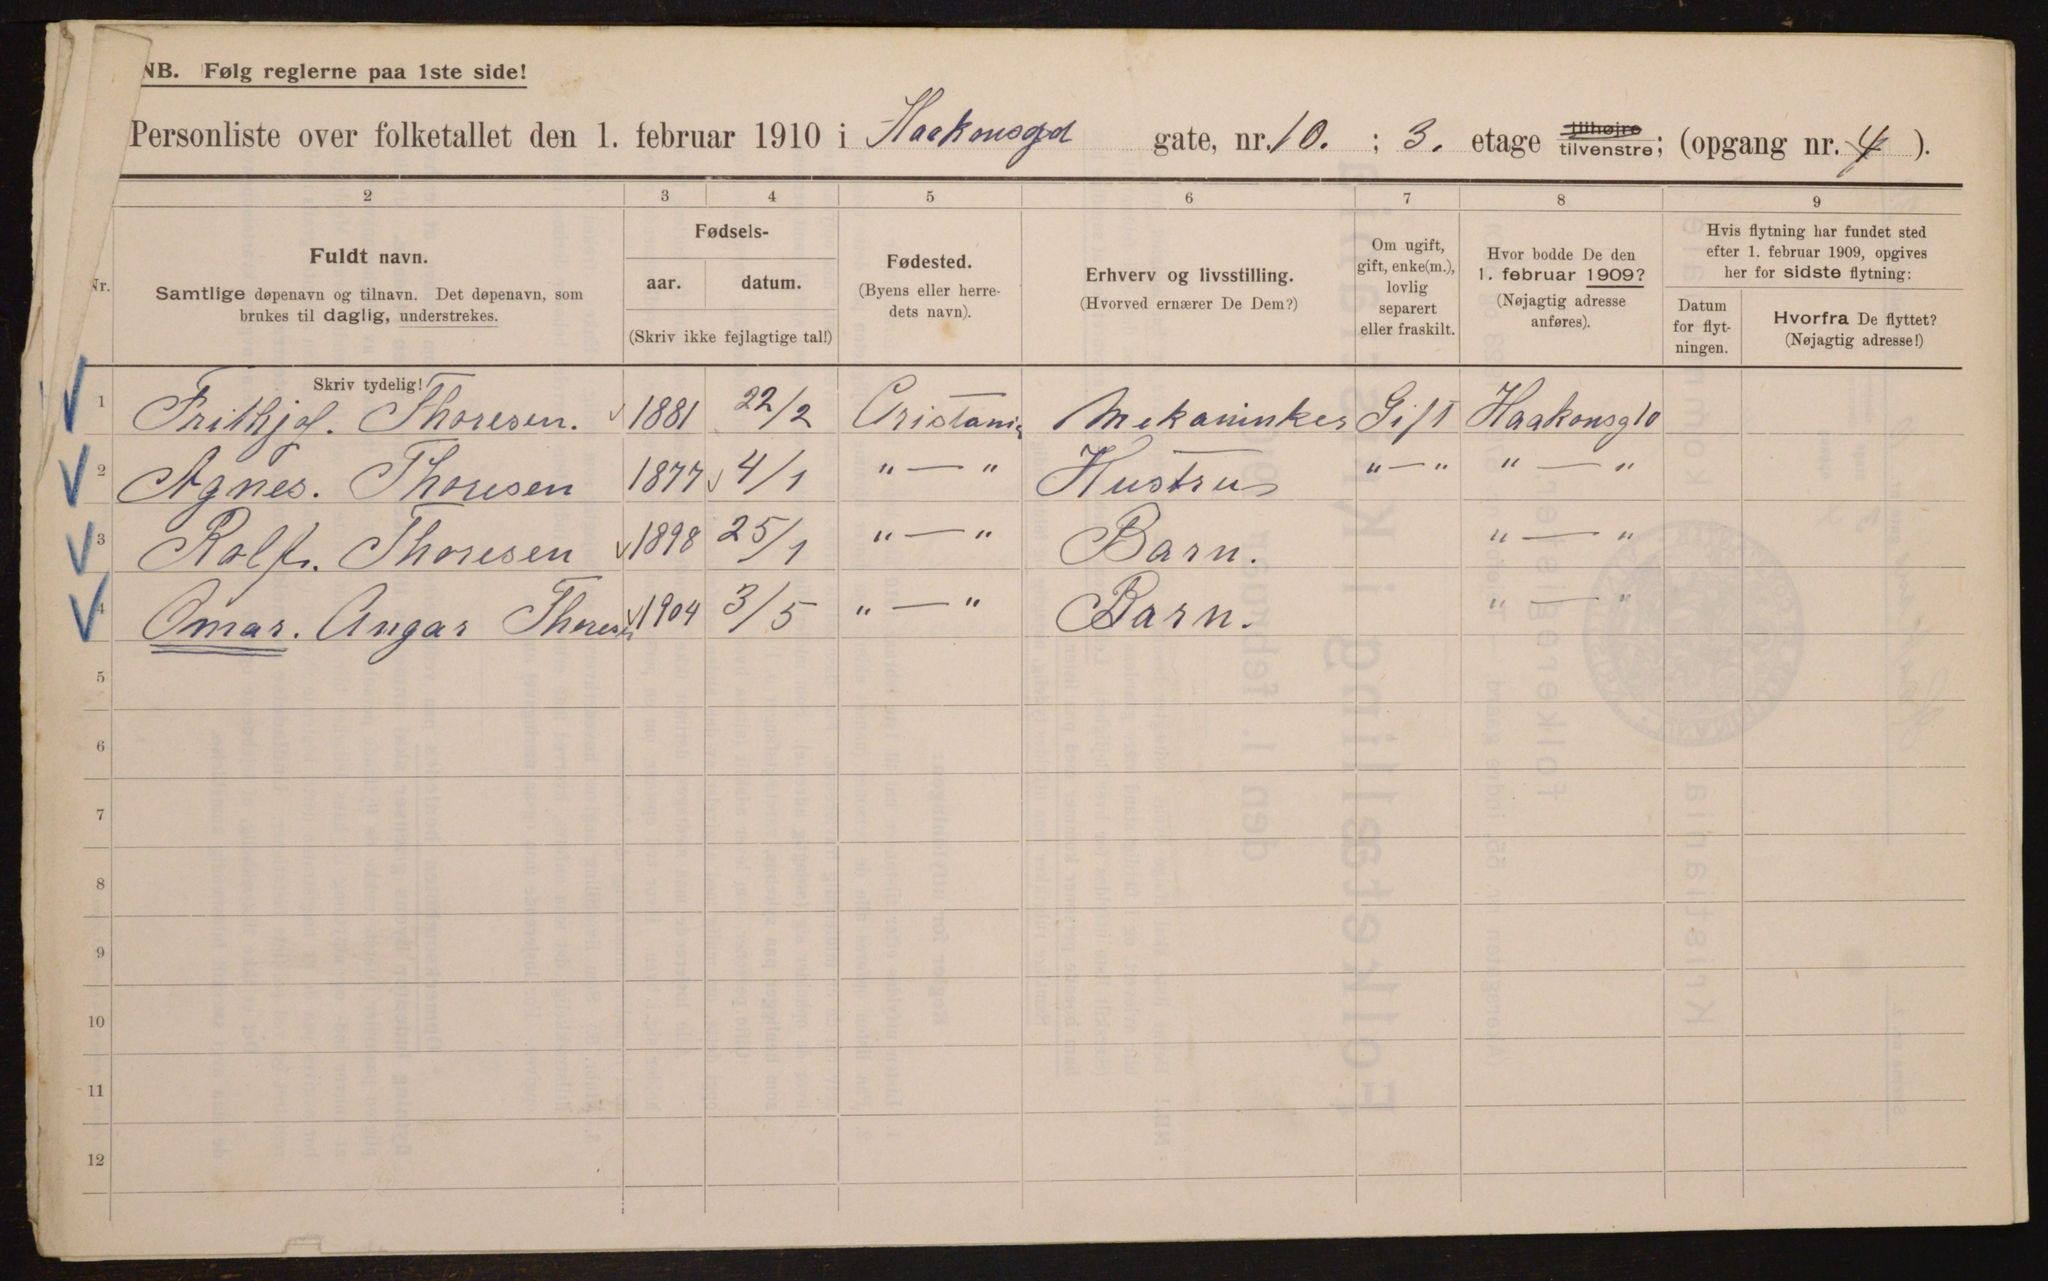 NB. Følg reglerne paa 1ste side!
Personliste over folketallet den 1. februar 1910 i Haakonsgd gate, nr. 10. ; 3. etage tilhøjre tilvenstre; (opgang nr. 4 ).
2 3 4 5 6 7 8 9
Nr.
Fuldt navn.
Samtlige døpenavn og tilnavn. Det døpenavn, som
brukes til daglig, understrekes.
Fødsels-
aar. datum.
(Skriv ikke fejlagtige tal!)
Fødested.
(Byens eller herre-
dets navn).
Erhverv og livsstilling.
(Hvorved ernærer De Dem?)
Om ugift,
gift, enke(m.),
lovlig
separert
eller fraskilt.
Hvor bodde De den
1. februar 1909?
(Nøjagtig adresse
anføres).
Hvis flytning har fundet sted
efter 1. februar 1909, opgives
her for sidste flytning:
Datum
for flyt-
ningen.
Hvorfra De flyttet?
(Nøjagtig adresse!)
Skriv tydelig!
1 Frithjof. Thoresen. 1881 22/2 Cristania Mekaninker Gift Haakonsg10
2 Agnes. Thoresen 1877 4/1 " — " Hustru " — " " — "
3 Rolf. Thoresen 1898 25/1 " — " Barn. " — "
4 Omar. Angar Thoresen 1904 3/5 " — " Barn. " — "
5
6
7
8
9
10
11
12